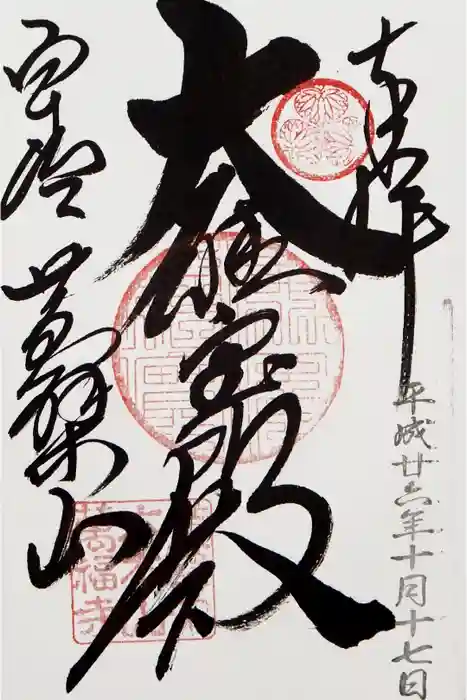 奉拝
平成廿六年十月十七日
大雄宝殿
宇治 黄檗山
萬福寺